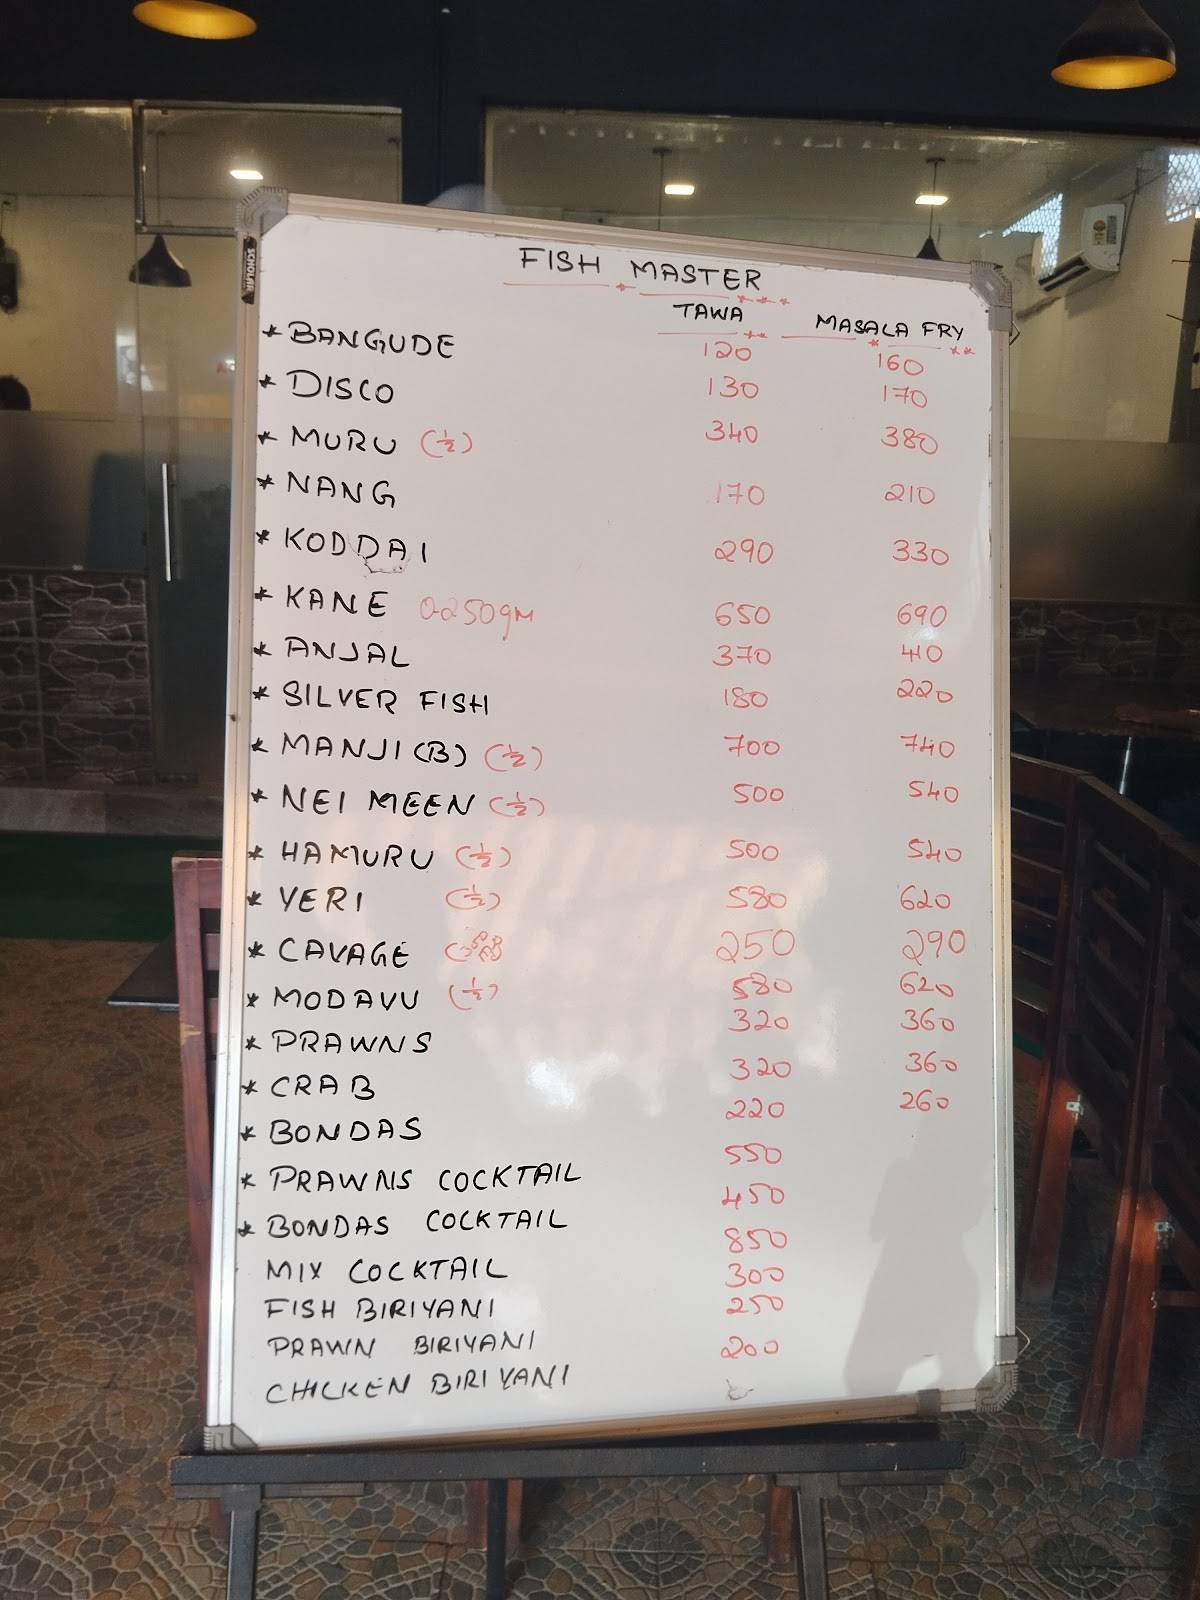 FISH MASTER
TAWA MASALA FRY
* BANGUDE 120 160
* DISCO 130 170
* MURU (1/2) 340 380
* NANG 170 210
* KODDAI 290 330
* KANE 0-250gM 650 690
* ANJAL 370 410
* SILVER FISH 180 220
* MANJI (B) (1/2) 700 740
* NEI MEEN (1/2) 500 540
* HAMURU (1/2) 500 540
* YERI (1/2) 580 620
* CAVAGE 250 290
* MODAVU (1/2) 580 620
* PRAWNS 320 360
* CRAB 320 360
* BONDAS 220 260
* PRAWNS COCKTAIL 550
* BONDAS COCKTAIL 450
MIX COCKTAIL 850
FISH BIRIYANI 300
PRAWN BIRIYANI 250
CHICKEN BIRIYANI 200
SCHOLAR